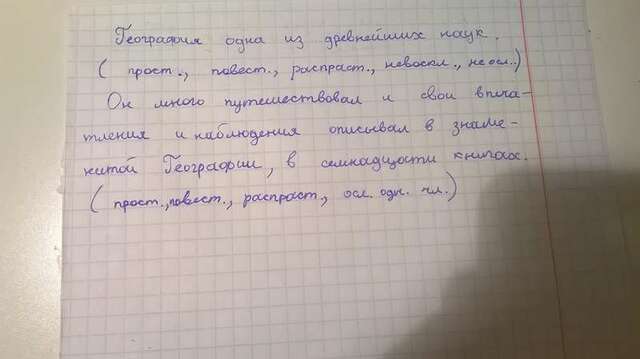 География одна из древнейших наук.
( прост., повест., распраст., невоскл., не осл.)
Он много путешествовал и свои впеча-
тления и наблюдения описывал в знаме-
нитой Географии, в семнадцати книгах.
( прост., повест., распраст., осл. одн. чл.)